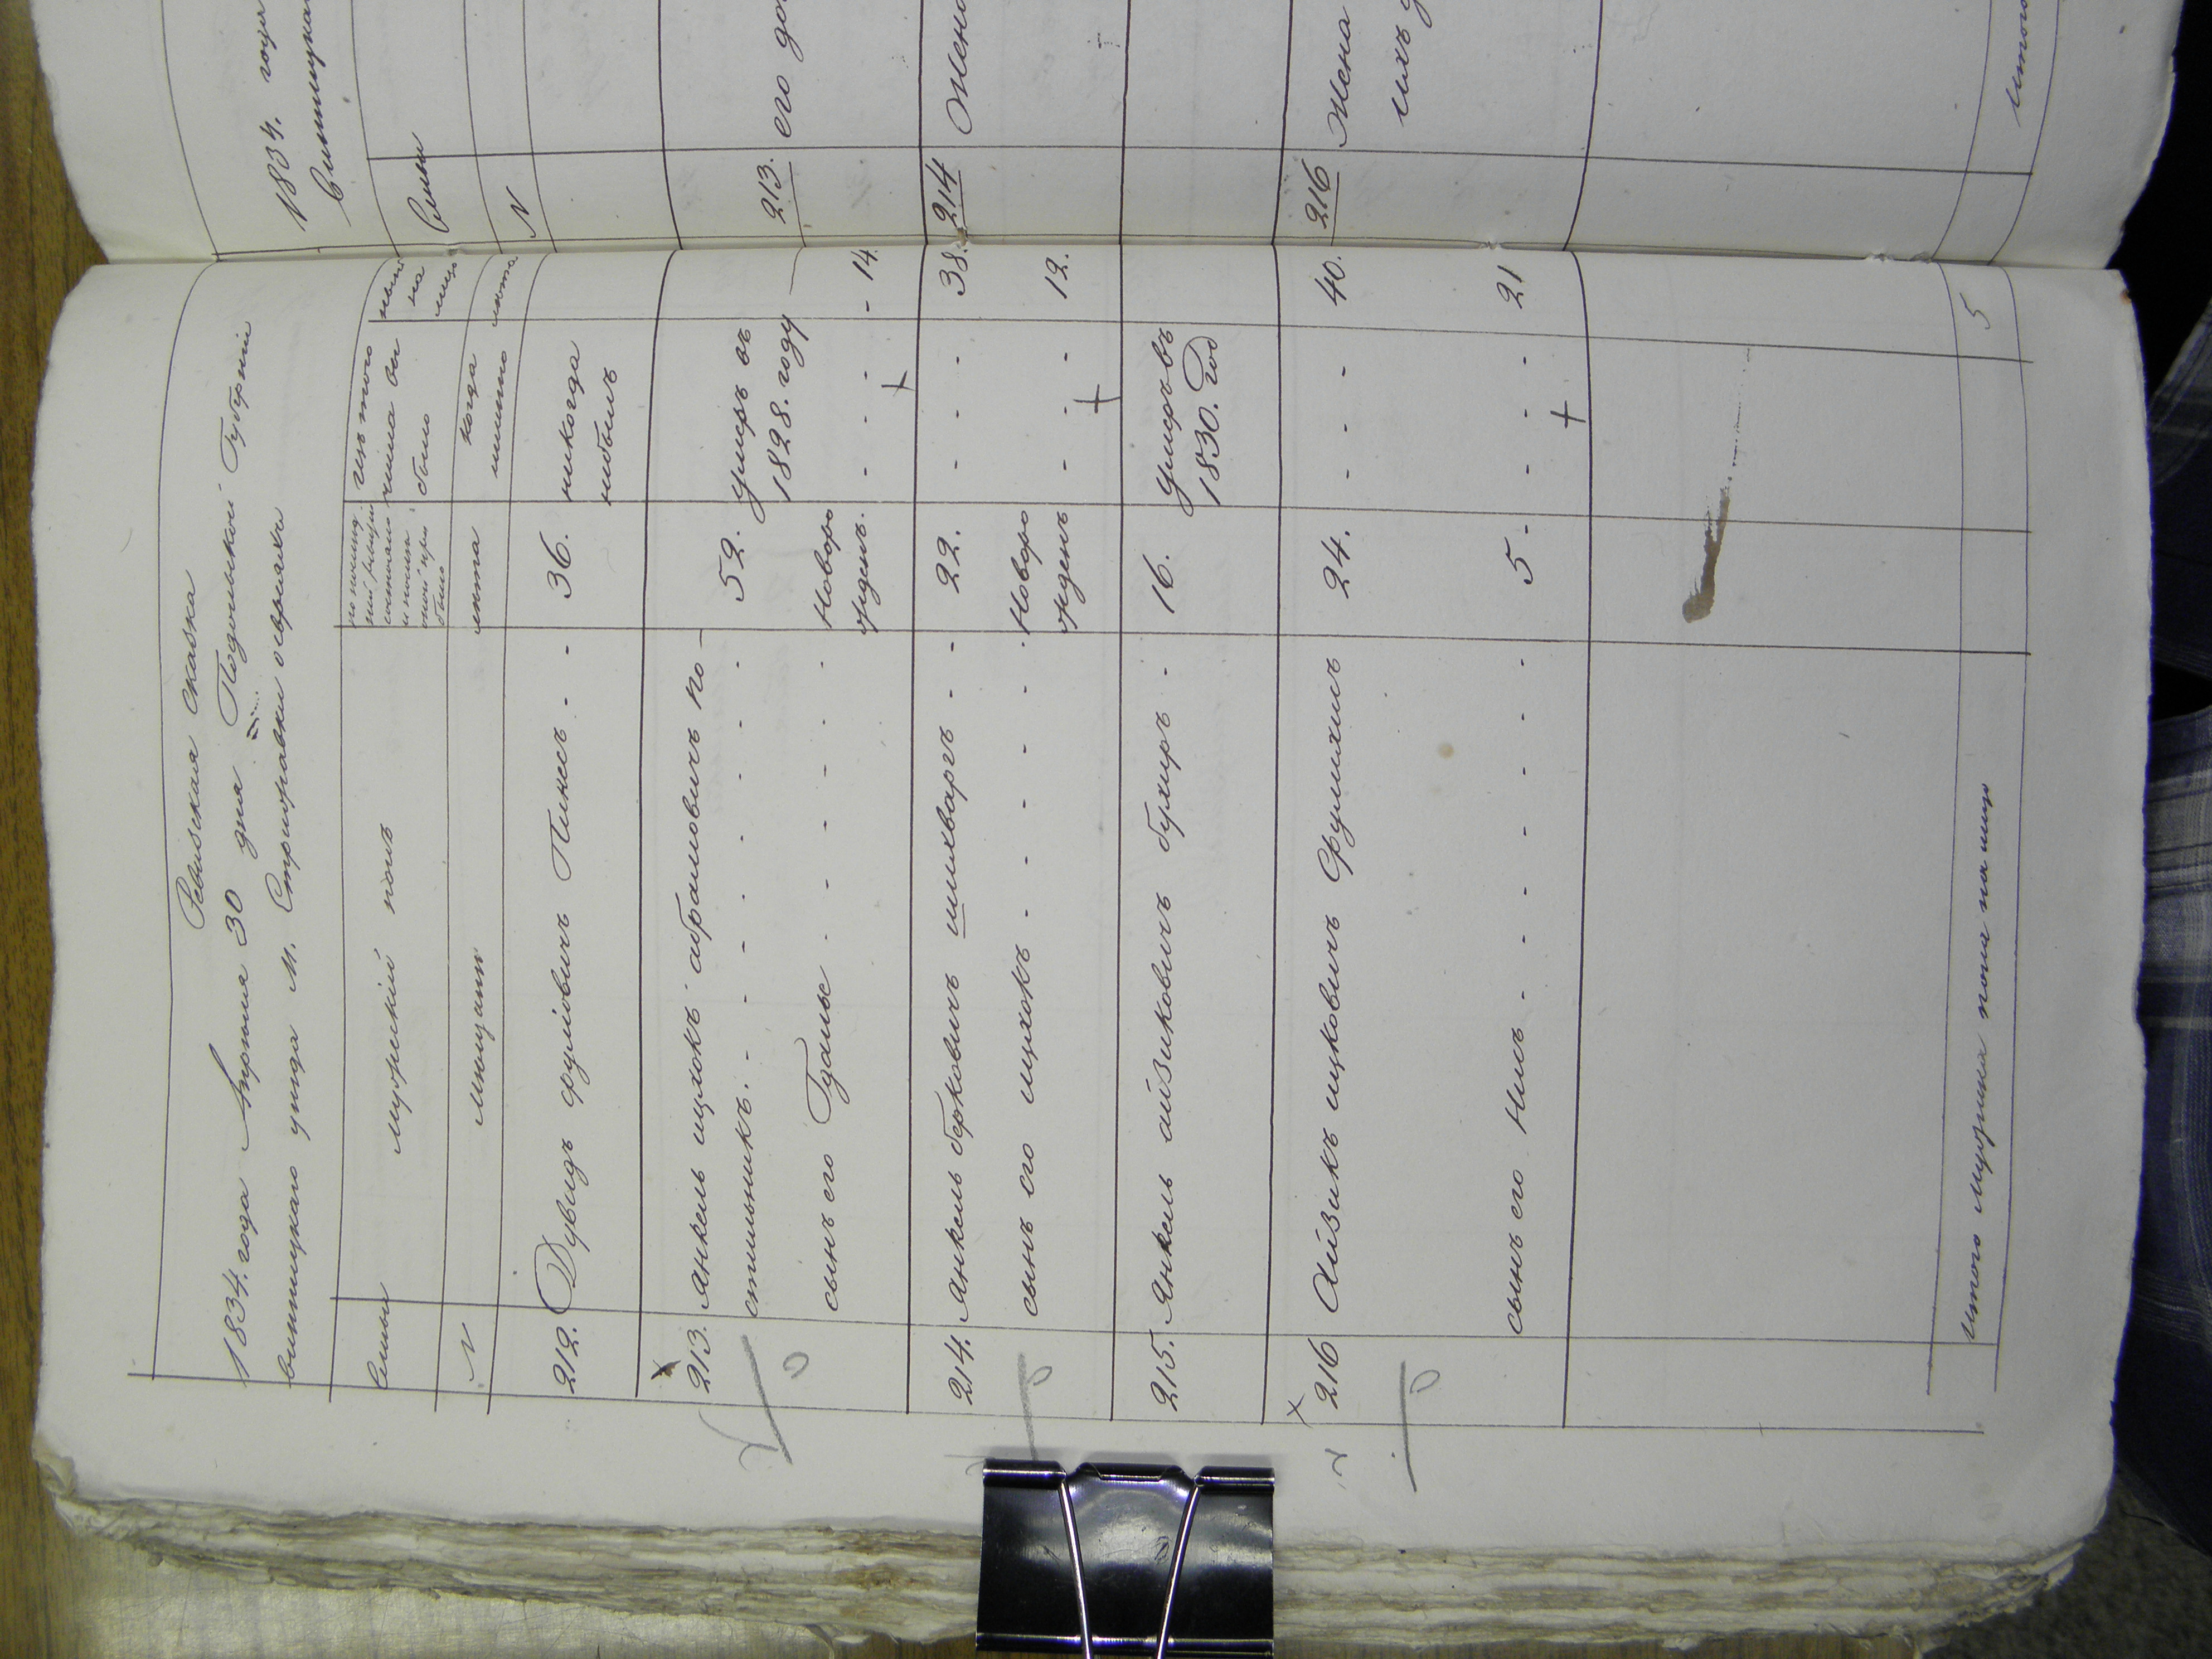 Ревизская сказка
1834. года Апреля 30 дня Подольской Губернiи
винницкаго уезда М. Стрижавки о евреяхъ
Семьи
мужескiй полъ
из того числа вы было
на лицо
N
мещане
лета
когда именно
лета
212. Дувидъ фруимовичъ Пикесъ - - 36. никогда
небылъ
213. янкель ицхокъ абрамовичъ по- 52. умеръ въ
стильникъ. - - - - - - - 1828. году
сынъ его Гдалье - - - - - Новоро - - - - 14.
жденъ.
214. янкель берковичъ шихваргъ - - 22. - - - 38.
сынъ его ицхокъ - - - - - Новоро - - - 12.
жденъ
215. янкель айзиковичъ бухиръ - 16. умеръ въ
1830. Год
216 Айзикъ ицковичъ Фруихимъ 24. - - - 40.
сынъ его Хиль - - - - - - 5 - - - - 21
итого мужеска пола на лицо 5
1834. года
Винницкаго
Семьи
N
213. его
214 Жена
216 Жена
ихъ
итого